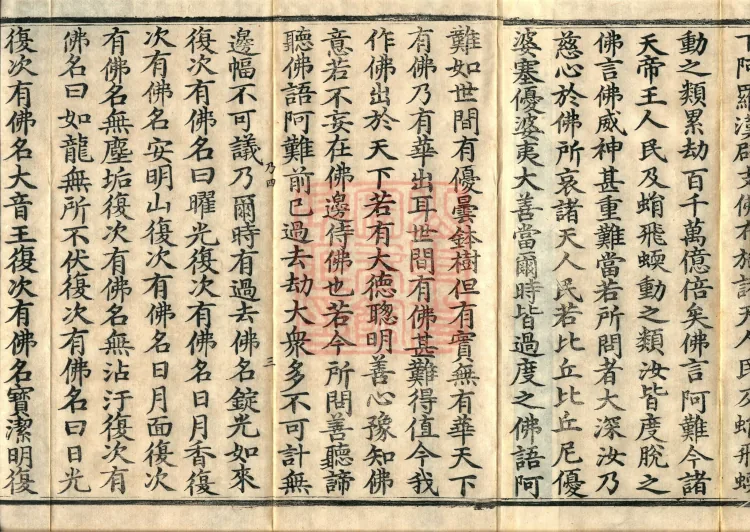 下阿羅漢辟支佛布施諸天人民及蜎飛蝡
動之類累劫百千萬億倍矣佛言阿難今諸
天帝王人民及蜎飛蝡動之類汝皆度脫之
佛言佛威神甚重難當若所問者大深汝乃
慈心於佛所哀諸天人民若比丘比丘尼優
婆塞優婆夷大善當爾時皆過度之佛語阿
難如世間有優曇鉢樹但有實無有華天下
有佛乃有華出耳世間有佛甚難得值今我
作佛出於天下若有大德聰明善心豫知佛
意若不妄在佛邊侍佛也若今所問善聽諦
聽佛語阿難前已過去劫大衆多不可計無
乃四 三
邊幅不可議乃爾時有過去佛名錠光如來
復次有佛名曰曜光復次有佛名日月香復
次有佛名安明山復次有佛名日月面復次
有佛名無塵垢復次有佛名無沾汙復次有
佛名曰如龍無所不伏復次有佛名曰日光
復次有佛名大音王復次有佛名寶潔明復